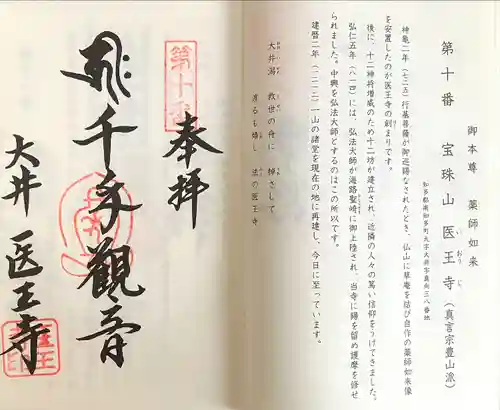 第十番
御本尊 薬師如来
宝珠山 医王寺（真言宗豊山派）
いおうじ
知多郡南知多町大字大井字真向三八番地
神亀二年（七二五）行基菩薩が御巡錫なされたとき、仏山に草庵を結び自作の薬師如来像
を安置したのが医王寺の創まりです。
後に、十二神将増威のため十二坊が建立され、近隣の人々の篤い信仰をうけてきました。
弘仁五年（八一四）には、弘法大師が海路聖崎に御上陸され、当寺に錫を留め護摩を修せ
られました。中興を弘法大師とするのはこの所以です。
建暦二年（一二一二）一山の諸堂を現在の地に再建し、今日に至っています。
大井潟 救世の舟に 棹さして
渡るも嬉し 法の医王寺
第十番
奉拝
千手観音
大井 医王寺